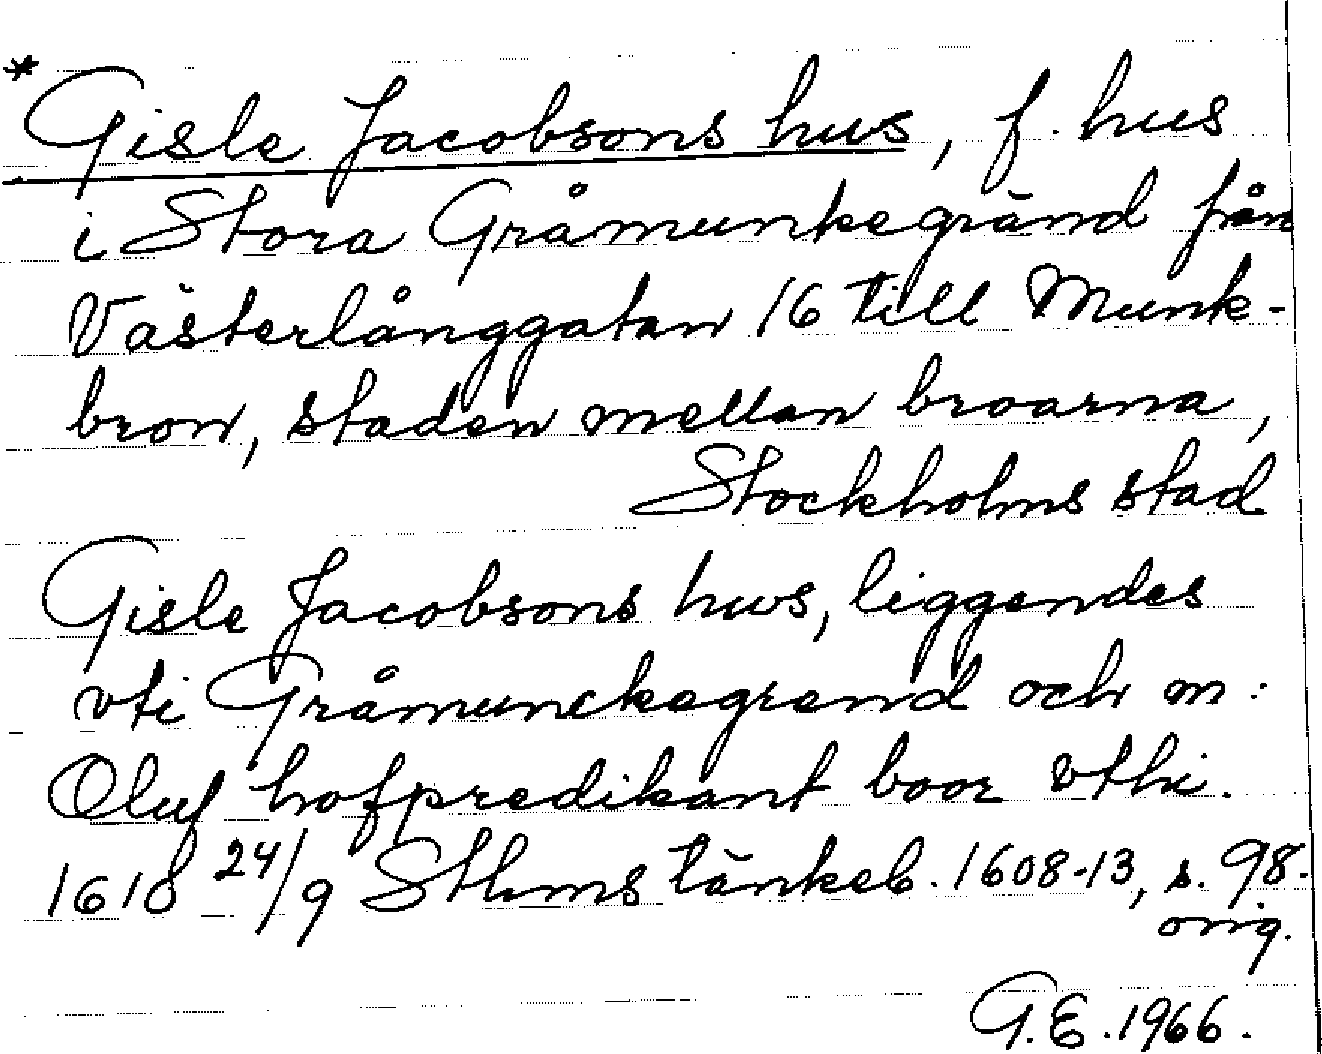 * Gisle Jacobsons hus, f. hus
i Stora Gråmunkegränd från
Västerlånggatan 16 till Munk-
bron, staden mellan broarna,
Stockholms stad
Gisle Jacobsons hus, liggendes
vti Gråmunckagrend och m:
Oluf hofpredikant boor vthi.
1618 24/9 Sthms tänkeb. 1608-13, s. 98.
orig.
G.E. 1966.